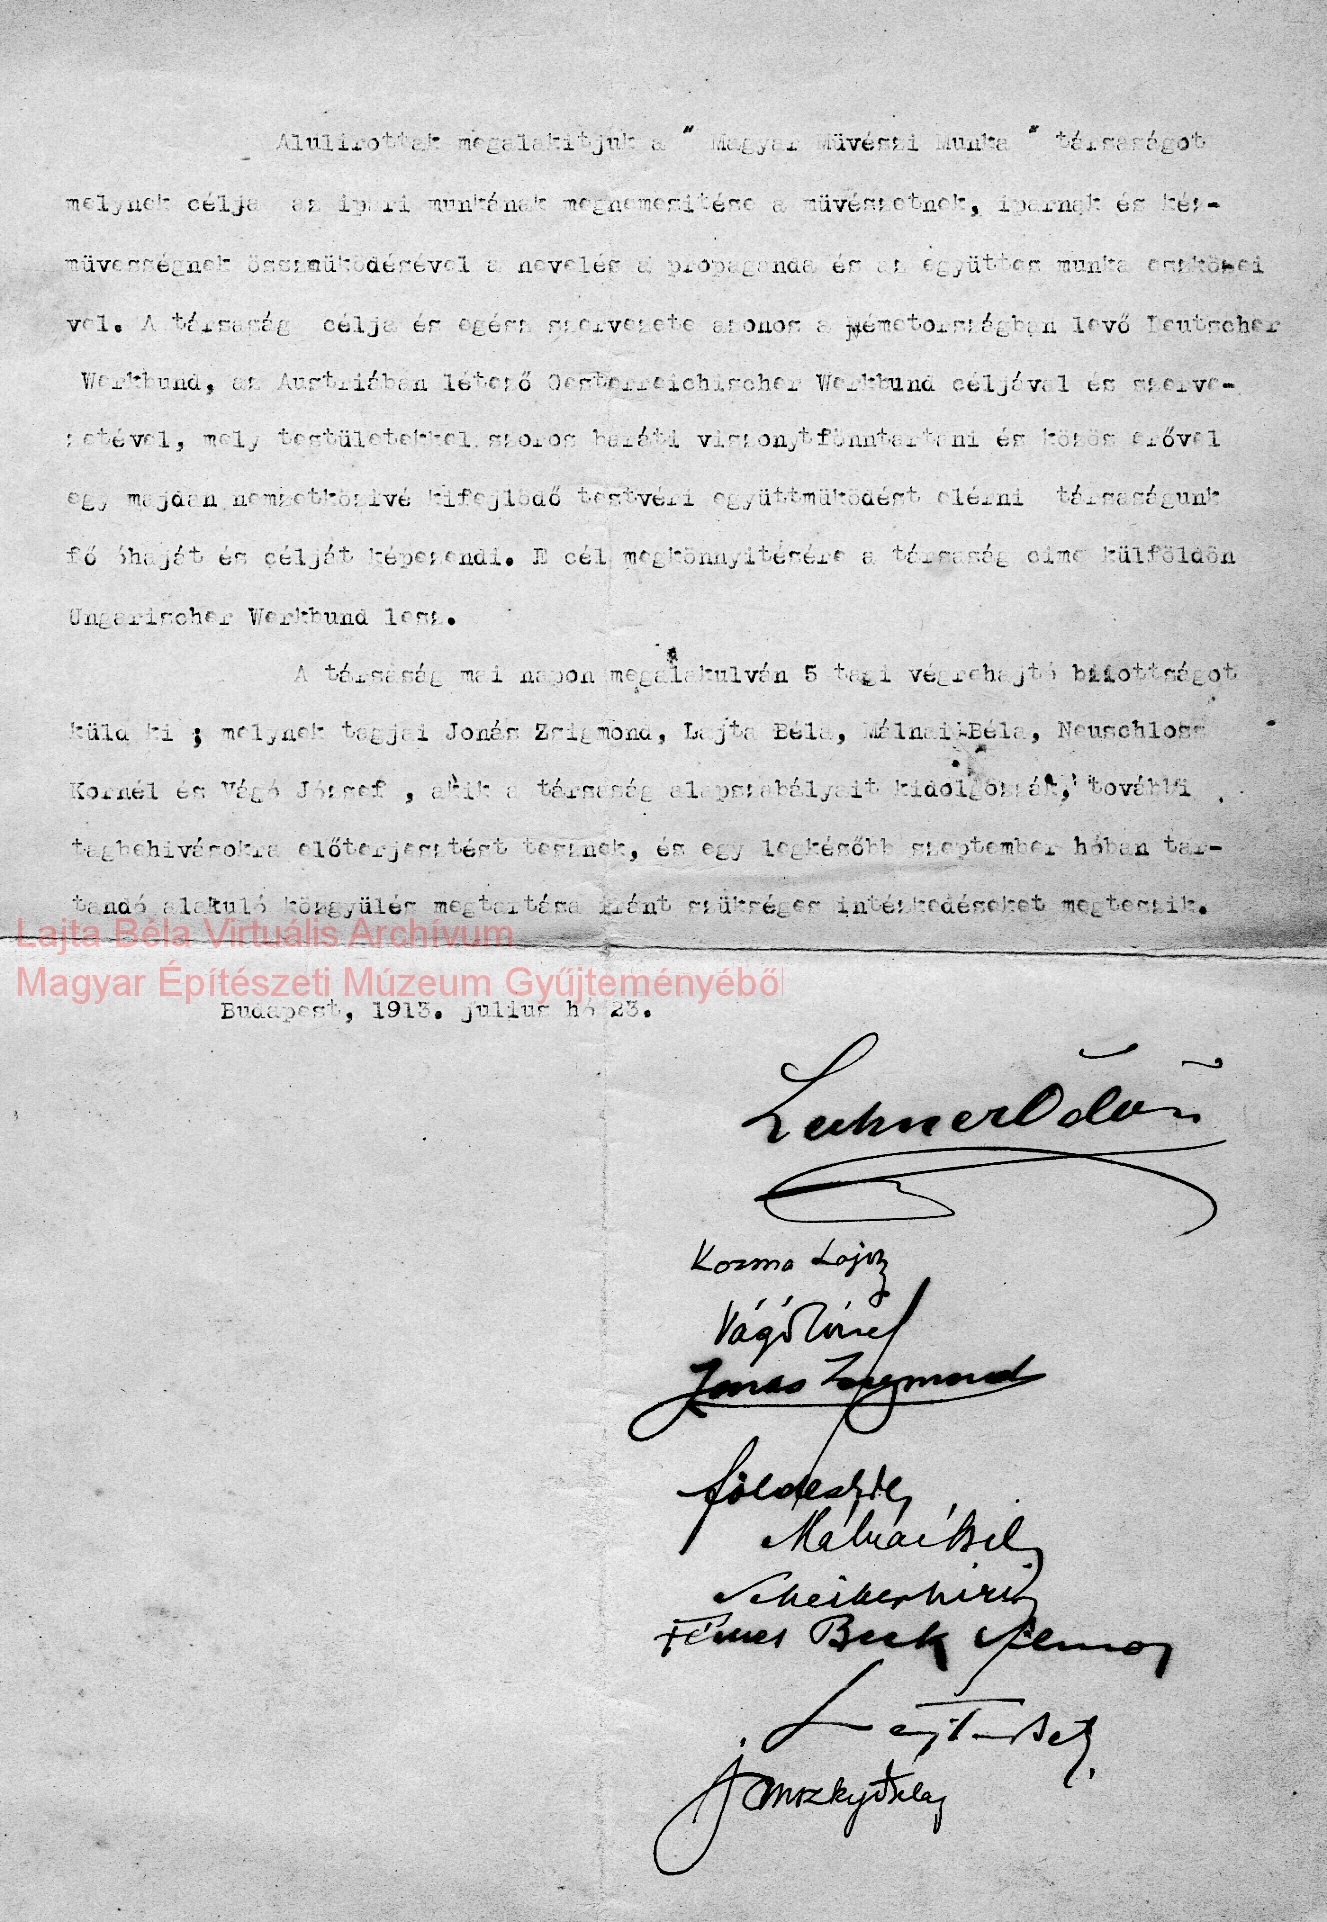 Alulirottak megalakitjuk a " Magyar Müvészi Munka " társaságot
melynek célja az ipari munkának megnemesitése a müvészetnek, iparnak és kéz-
müvességnek összmüködésével a nevelés a propaganda és az együttes munka eszközei
vel. A társaság célja és egész szervezete azonos a Németországban levő Deutscher
Werkbund, az Austriában létező Oesterreichischer Werkbund céljával és szerve-
zetével, mely testületekkel szoros baráti viszonyt fönntartani és közös erővel
egy majdan nemzetközivé kifejlödő testvéri együttmüködést elérni társaságunk
fő óhaját és célját képezendi. E cél megkönnyitésére a társaság cime külföldön
Ungarischer Werkbund lesz.
A társaság mai napon megalakulván 5 tagi végrehajtó bizottságot
küld ki ; melynek tagjai Jónás Zsigmond, Lajta Béla, Málnai Béla, Neuschloss
Kornél és Vágó József , akik a társaság alapszabályait kidolgozzák, további
tagbehivásokra előterjesztést tesznek, és egy legkésőbb szeptember hóban tar-
tandó alakuló közgyülés megtartása iránt szükséges intézkedéseket megteszik.
Lajta Béla Virtuális Archívum
Magyar Építészeti Múzeum Gyűjteményéből
Budapest, 1913. julius hó 23.
Lechner Ödön
Kozma Lajos
Vágó József
Jónás Zsigmond
Málnai Béla
Fémes Beck Vilmos
Lajta Béla
Jánszky Béla